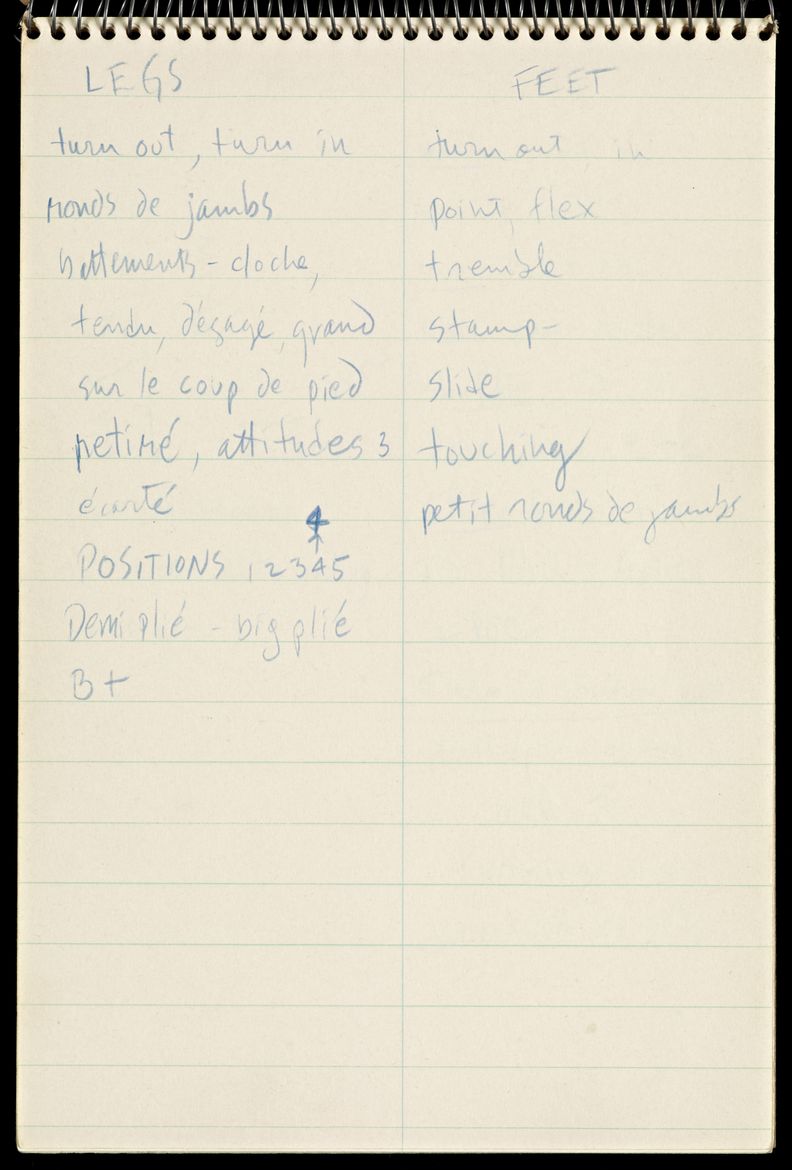 LEGS
turn out, turn in
ronds de jambs
battements - cloche,
tendu, dégagé, grand
sur le coup de pied
retiré, attitudes 3
écarté
4
POSITIONS 12345
Demi plié - big plié
B+
FEET
turn out, in
point, flex
tremble
stamp-
slide
touching
petit ronds de jambs